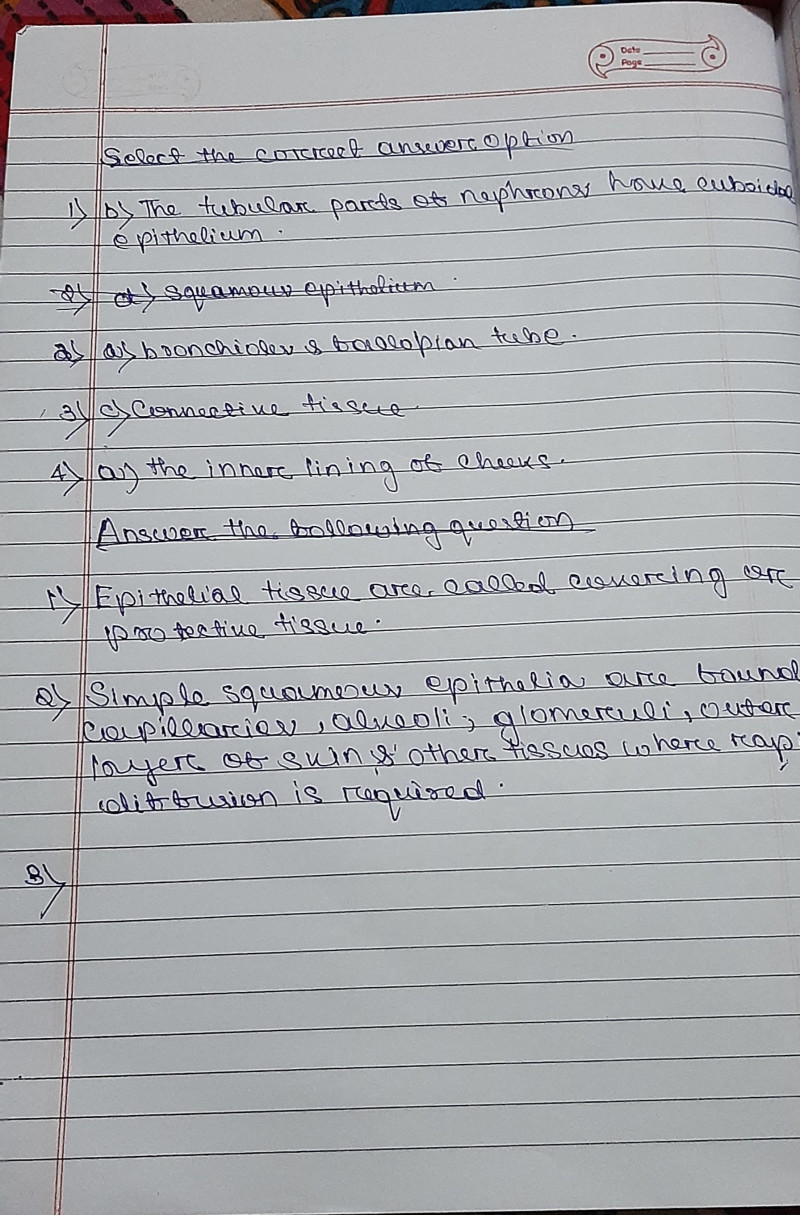 Date
Page
Select the correct answer option
1) b) The tubular parts of nephrons have cuboidal
epithelium.
2) a) squamous epithelium.
2) a) bronchioles & fallopian tube.
3) c) Connective tissue.
4) a) the inner lining of cheeks.
Answer the following question
1) Epithelial tissue are called covering or
protective tissue.
2) Simple squamous epithelia are found
capillaries, alveoli, glomeruli, outer
layer of skin & other tissues where rap
diffusion is required.
3)